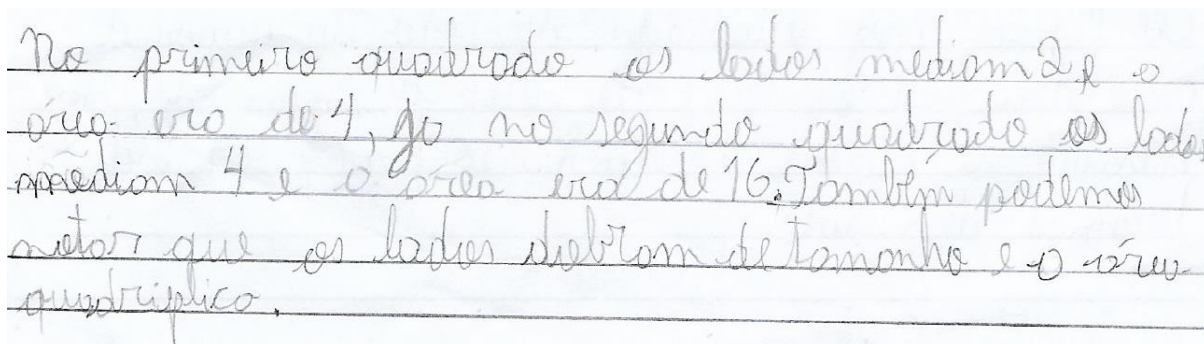 No primeiro quadrado os lados mediam 2 e a
área era de 4, ja no segundo quadrado os lados
mediam 4 e a área era de 16. Também podemos
notar que os lados dobram de tamanho e a área
quadriplica.